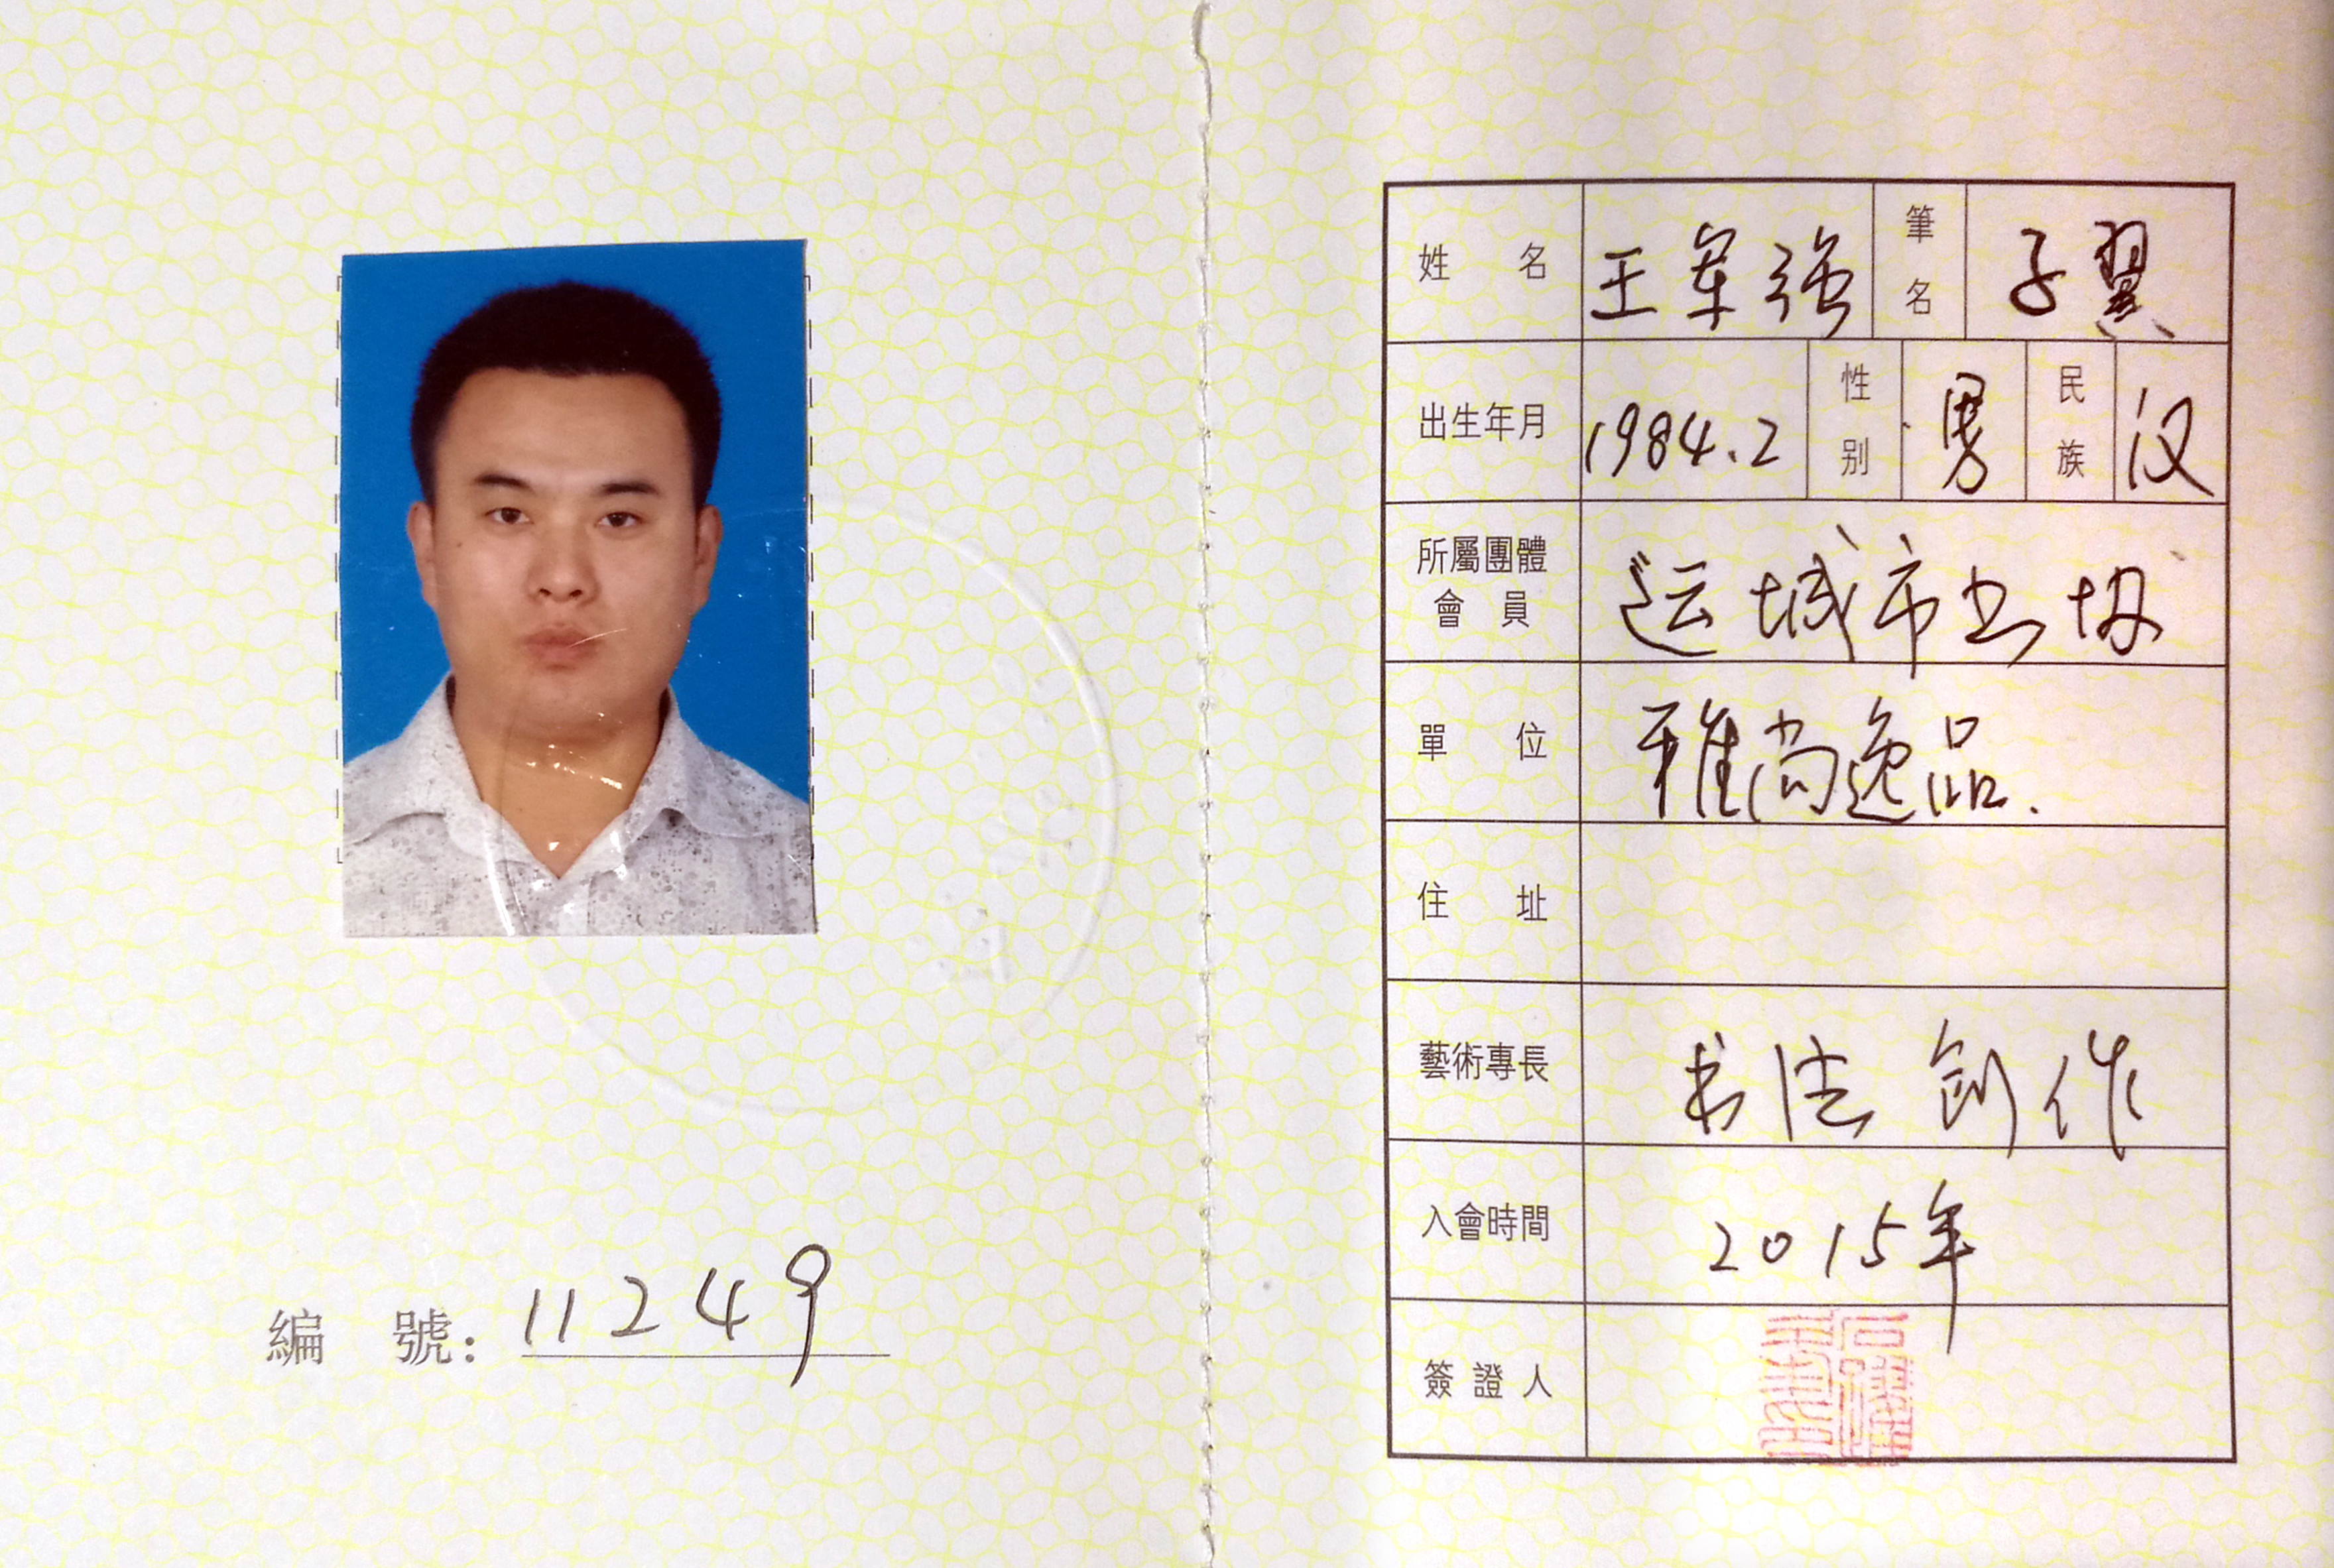 編 號: 11249
姓 名 王军强 筆名 子翼
出生年月 1984.2 性别 男 民族 汉
所屬團體會員 运城市书协
單 位 雅尚逸品.
住 址
藝術專長 书法创作
入會時間 2015年
簽 證 人